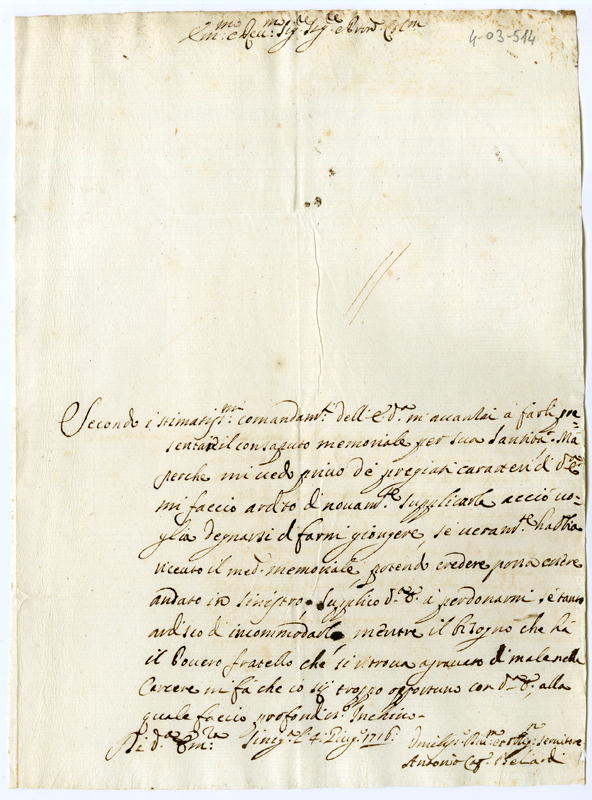 Em.mo e Rev.mo Sig.r Sig.r e Pron Col.mo
4-03-514
Secondo i stimatiss.mi comandam.ti dell'E. V.ra m'avanzai à farli pre=
sentare il consaputo memoriale per sua Santità. Mà
perche mi vedo privo de pregiati caratteri di V.ra E.
mi faccio ardito di novam.te supplicarla acciò vo-
glia degnarsi di farmi giongere, se veram.te habbia
ricevuto il med.o memoriale, potendo credere possa essere
andato in sinistro, supplico V.ra E. à perdonarmi se tanto
ardisco di incommodarla mentre il bisogno che hà
il Povero fratello che si ritrova agravato di male nelle
Carcere mi fà che io sij troppo opportuno con V.ra E. alla
quale faccio profondiss.o Inchino-
Di V.ra Em.za
Sinig.a li 4 Giug.o 1716
Umiliss.o
servitore
Antonio Belardi